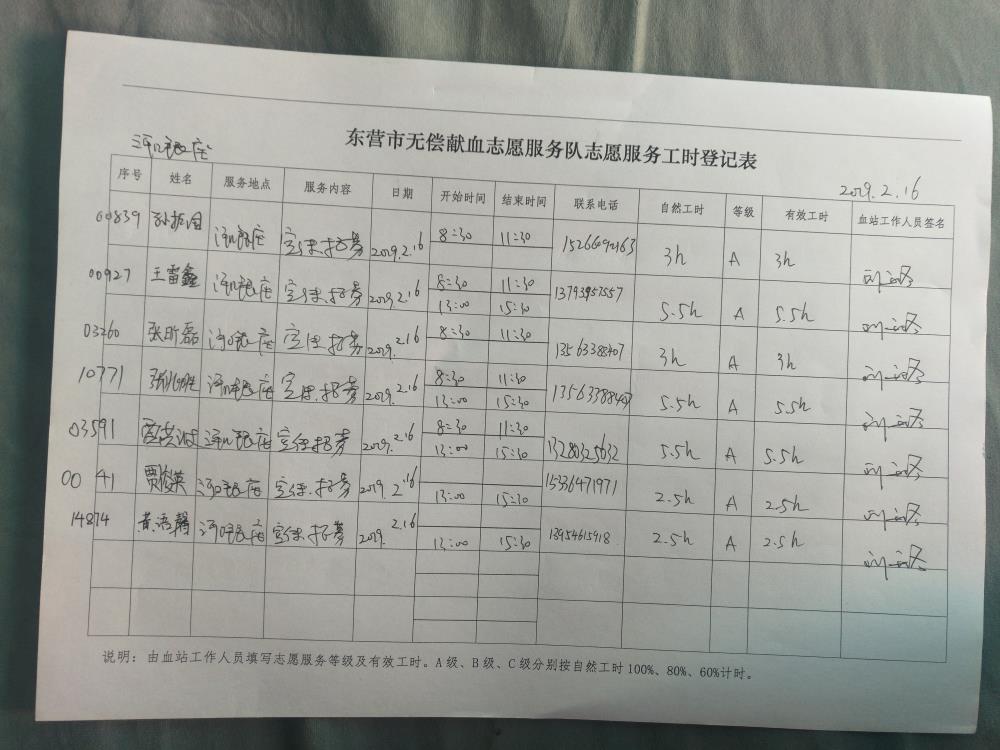 东营市无偿献血志愿服务队志愿服务工时登记表
银座 2019.2.16
序号 姓名 服务地点 服务内容 日期 开始时间 结束时间 联系电话 自然工时 等级 有效工时 血站工作人员签名
00839 银座 宣传.招募 2019.2.16 8:30 11:30 3h A 3h
00927 王雷鑫 银座 宣传.招募 2019.2.16 8:30 11:30 13793957557 5.5h A 5.5h
13:00 15:30
03260 张昕磊 银座 宣传.招募 2019.2.16 8:30 11:30 13563388407 3h A 3h
10771 银座 宣传.招募 2019.2.16 8:30 11:30 13563388407 5.5h A 5.5h
13:00 15:30
03591 银座 宣传招募 2019.2.16 8:30 11:30 13280325632 5.5h A 5.5h
13:00 15:30
00 41 银座 宣传.招募 2019.2.16 13:00 15:30 15336471971 2.5h A 2.5h
14874 银座 宣传.招募 2019.2.16 13:00 15:30 13954615918 2.5h A 2.5h
说明：由血站工作人员填写志愿服务等级及有效工时。A级、B级、C级分别按自然工时100%、80%、60%计时。